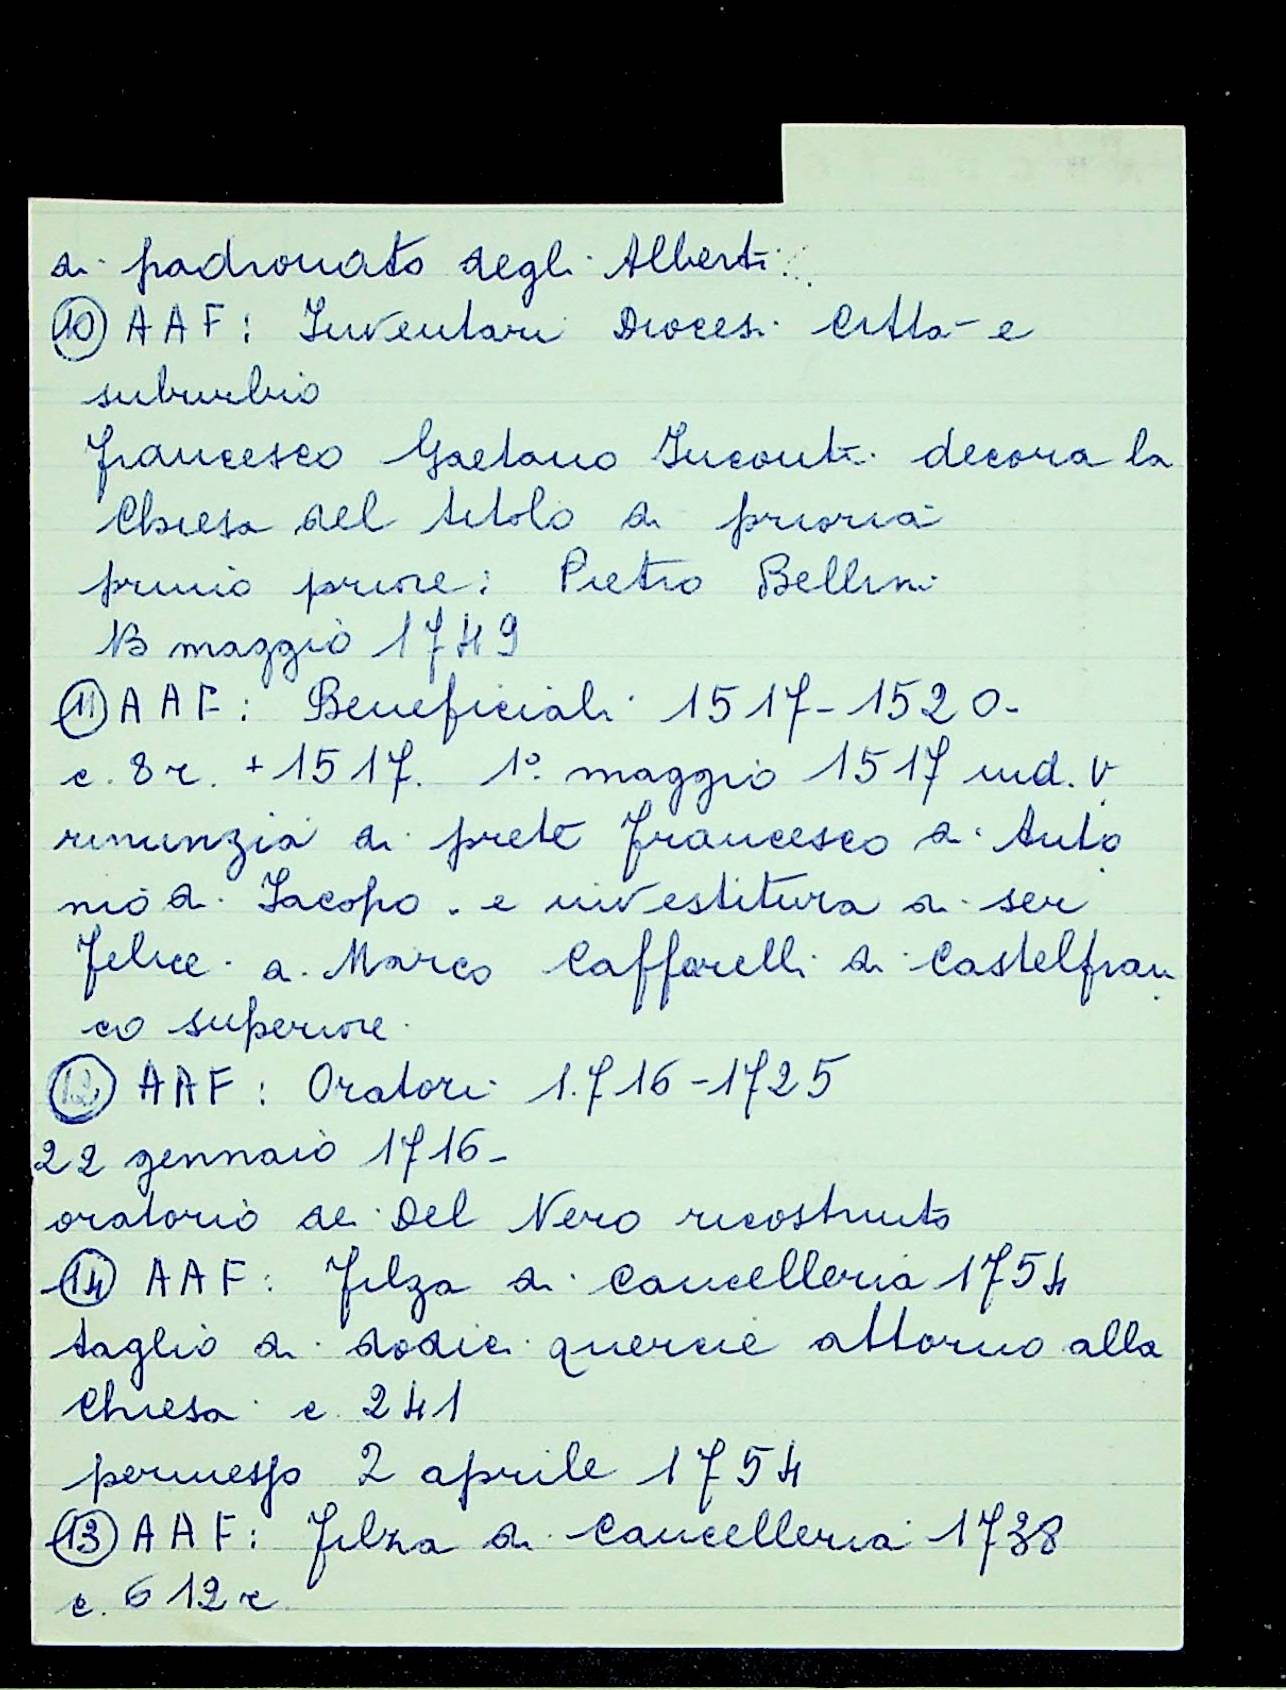 di padronato degli Alberti.
(10) AAF: Inventari Diocesi Città e
suburbio
Francesco Gaetano Incontri decora la
Chiesa del titolo di prioria
primo priore: Pietro Bellini
13 maggio 1749
(11) AAF: Beneficiali 1517-1520-
c. 8r. + 1517. 1° maggio 1517 ind. V
rinunzia di prete Francesco di Anto
nio di Iacopo. e investitura di ser
Felice di Marco Caffarelli di Castelfran
co superiore.
(12) AAF: Oratori 1.716-1725
22 gennaio 1716-
oratorio dei Del Nero ricostruito
(14) AAF: Filza di Cancelleria 1754
taglio di dodici quercie attorno alla
Chiesa c. 241
permesso 2 aprile 1754
(13) AAF: Filza di Cancelleria 1738
c. 612r.